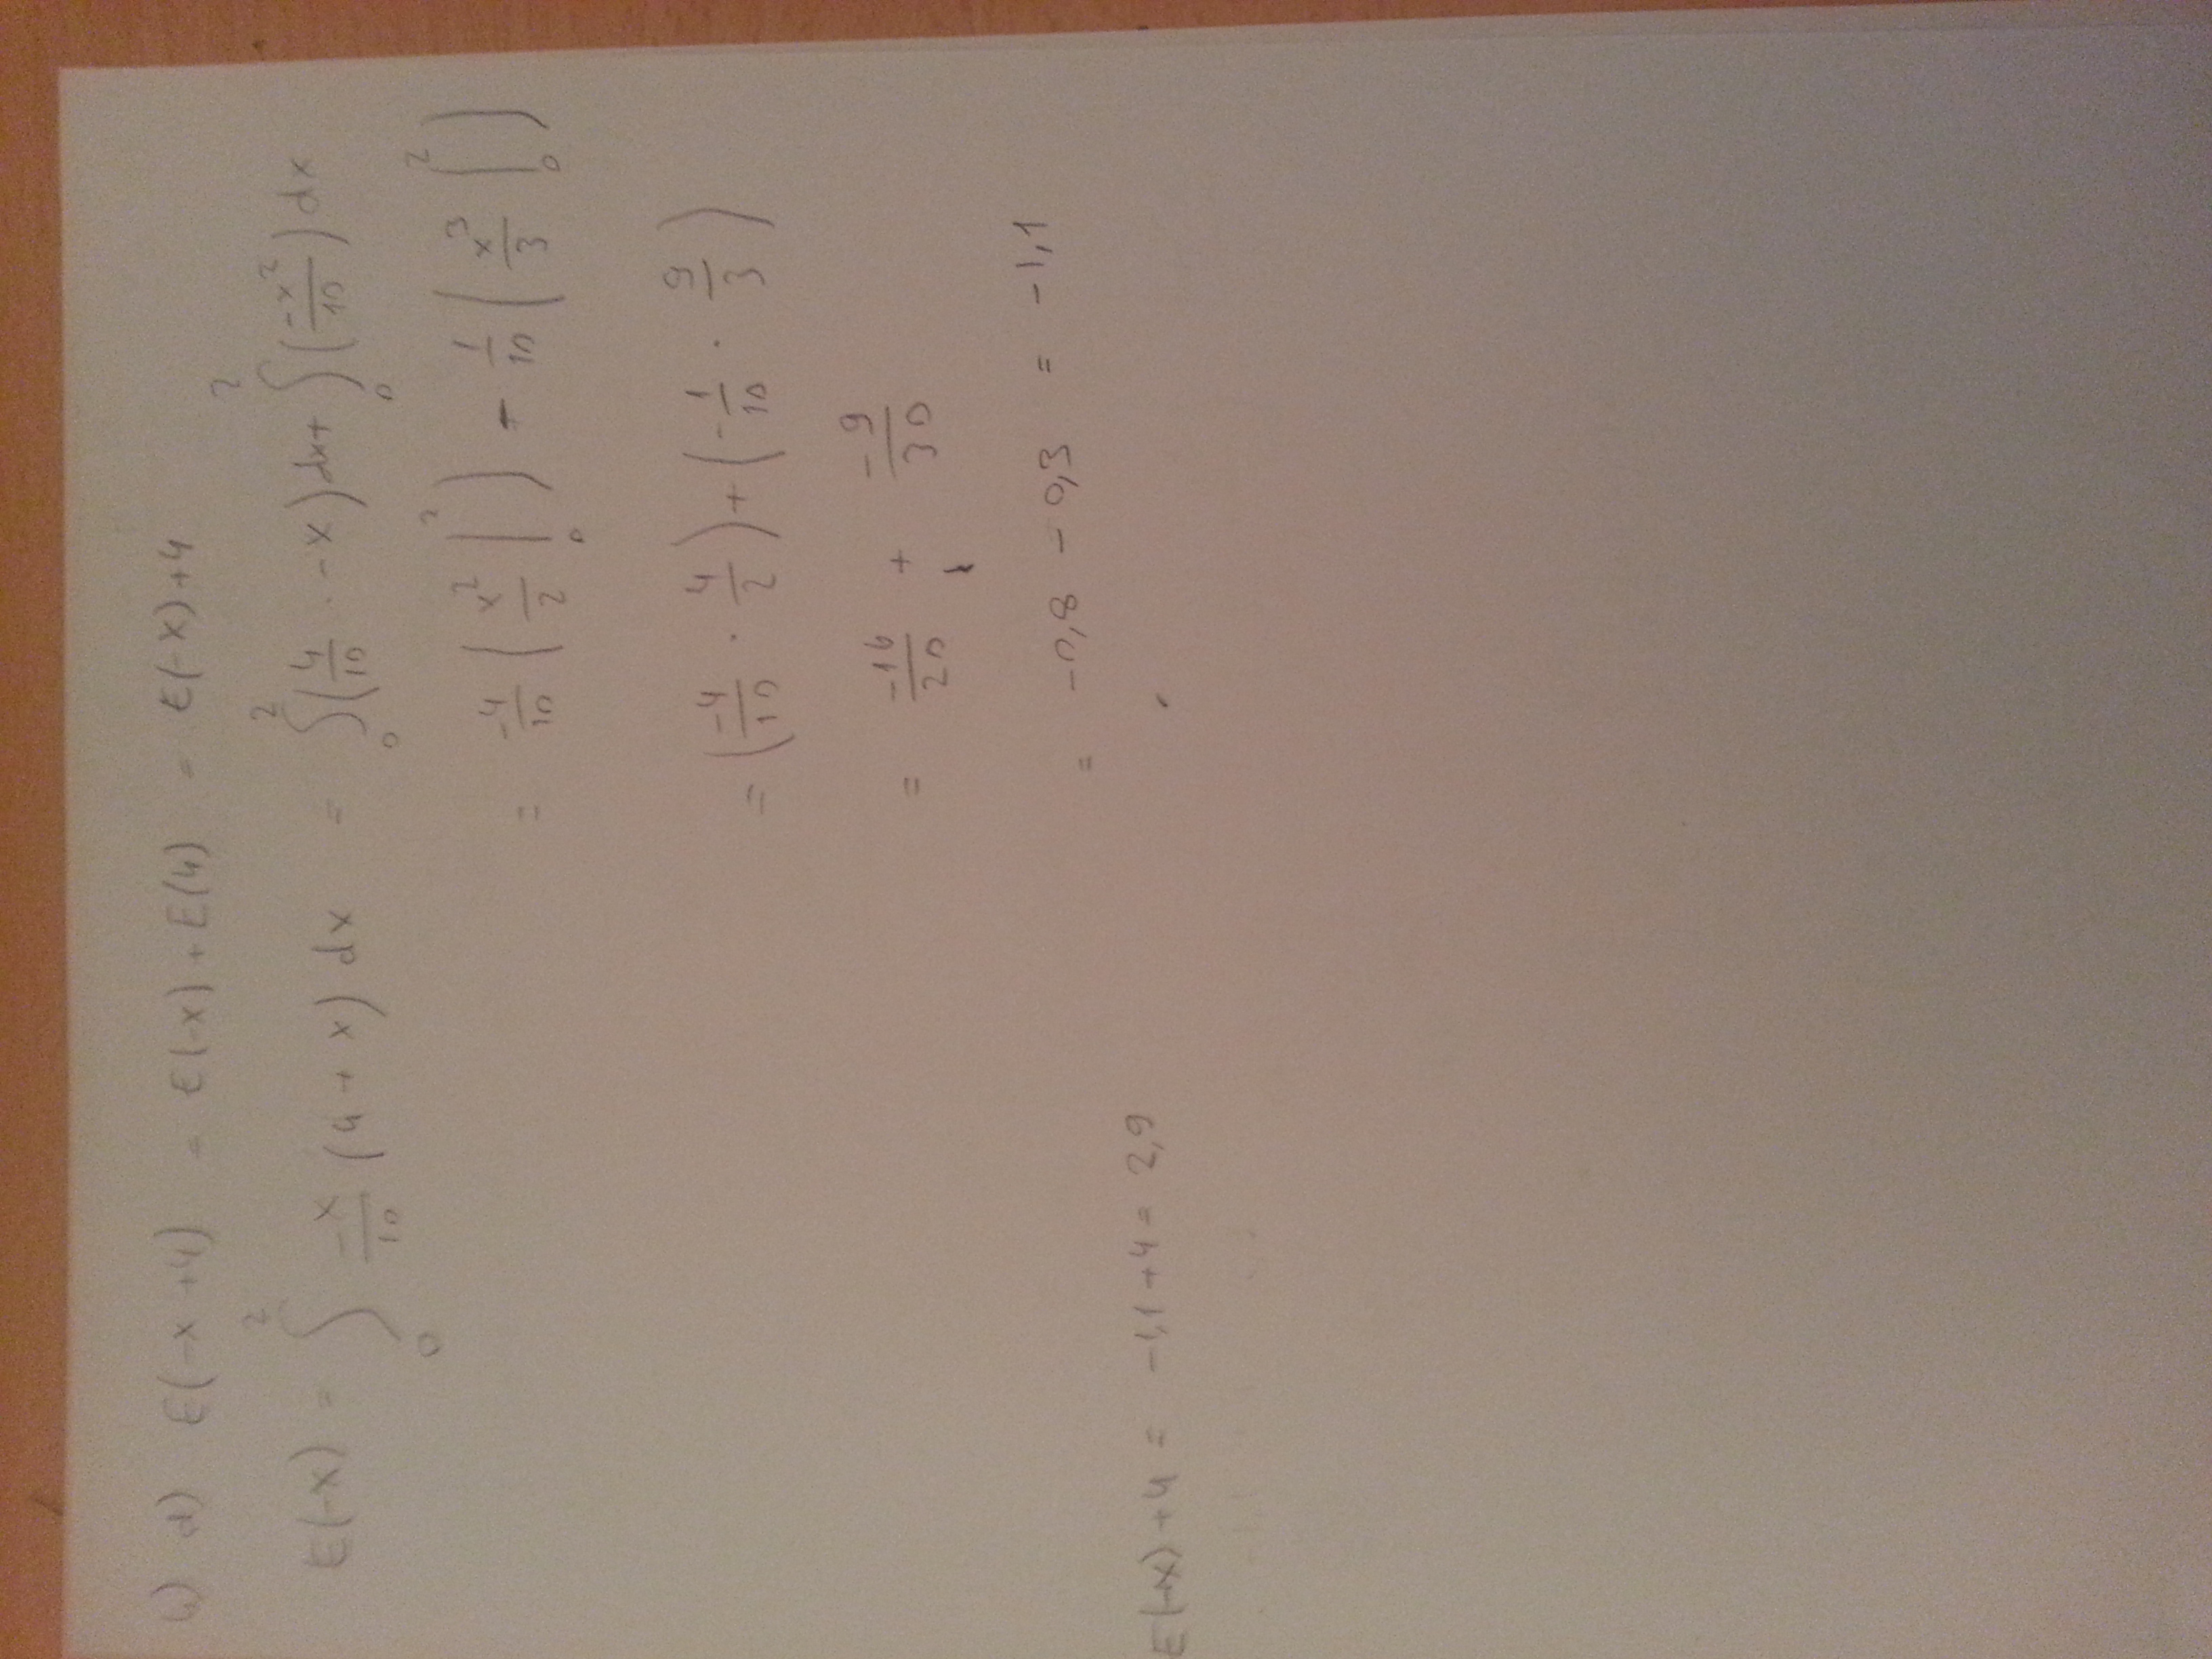 4) d) E(-x+4) = E(-x) + E(4) = E(-x)+4
E(-x) = ∫₀² -x/10 (4 + x) dx = ∫₀² (4/10 · -x) dx + ∫₀² (-x²/10) dx
= -4/10 ( x²/2 |₀² ) - 1/10 ( x³/3 |₀² )
= (-4/10 · 4/2) + (-1/10 · 9/3)
= -16/20 + -9/30
= -0,8 - 0,3 = -1,1
E(-x) + 4 = -1,1 + 4 = 2,9